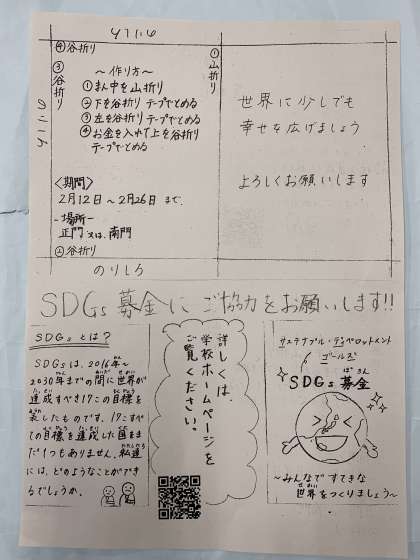 のりしろ
④谷折り
③谷折り
のりしろ
～作り方～
①まん中を山折り
②下を谷折り テープでとめる
③左を谷折り テープでとめる
④お金を入れて上を谷折り
テープでとめる
〈期間〉
2月12日～2月26日まで
-場所-
正門又は、南門
②谷折り
のりしろ
①山折り
世界に少しでも
幸せを広げましょう
よろしくお願いします
SDGs募金にご協力をお願いします!!
SDGsとは？
SDGsは、2016年～
2030年までの間に世界が
達成すべき17この目標を
表したものです。17こすべ
ての目標を達成した国はま
だ1つもありません。私達
には、どのようなことができ
るでしょうか。
詳しくは、
学校ホームページを
ご覧ください。
サステナブル・デベロットメント
ゴールズ
SDGs募金
～みんなですてきな
世界をつくりましょう～